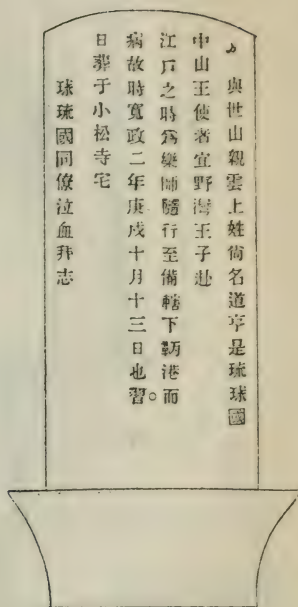 與世山親雲上姓尙名道亨是琉球國
中山王使者宜野灣王子赴
江戶之時爲樂師隨行至備轄下鞆港而
病故時寬政二年庚戌十月十三日也翌
日葬于小松寺宅
球琉國同僚泣血拜志